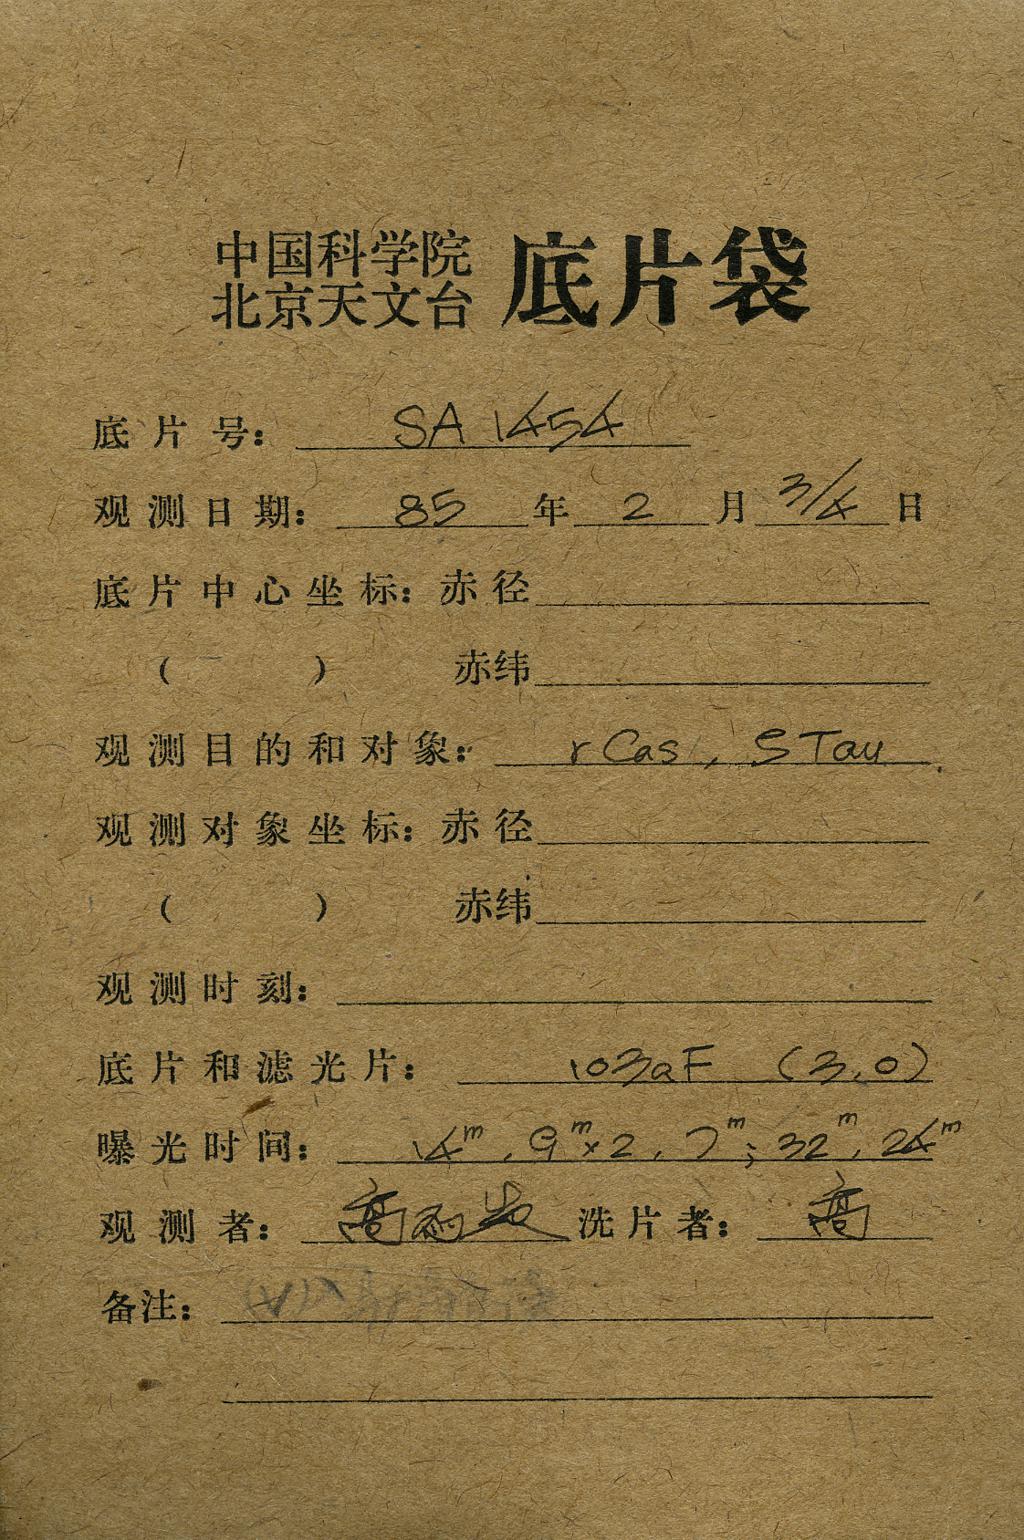 中国科学院
北京天文台 底片袋
底片号: SA 1454
观测日期: 85 年 2 月 3/4 日
底片中心坐标: 赤径
( ) 赤纬
观测目的和对象: r Cas, S Tau
观测对象坐标: 赤径
( ) 赤纬
观测时刻:
底片和滤光片: 103aF (3,0)
曝光时间: 14ᵐ, 9ᵐ×2, 7ᵐ; 32ᵐ, 24ᵐ
观测者: 高 洗片者: 高
备注: